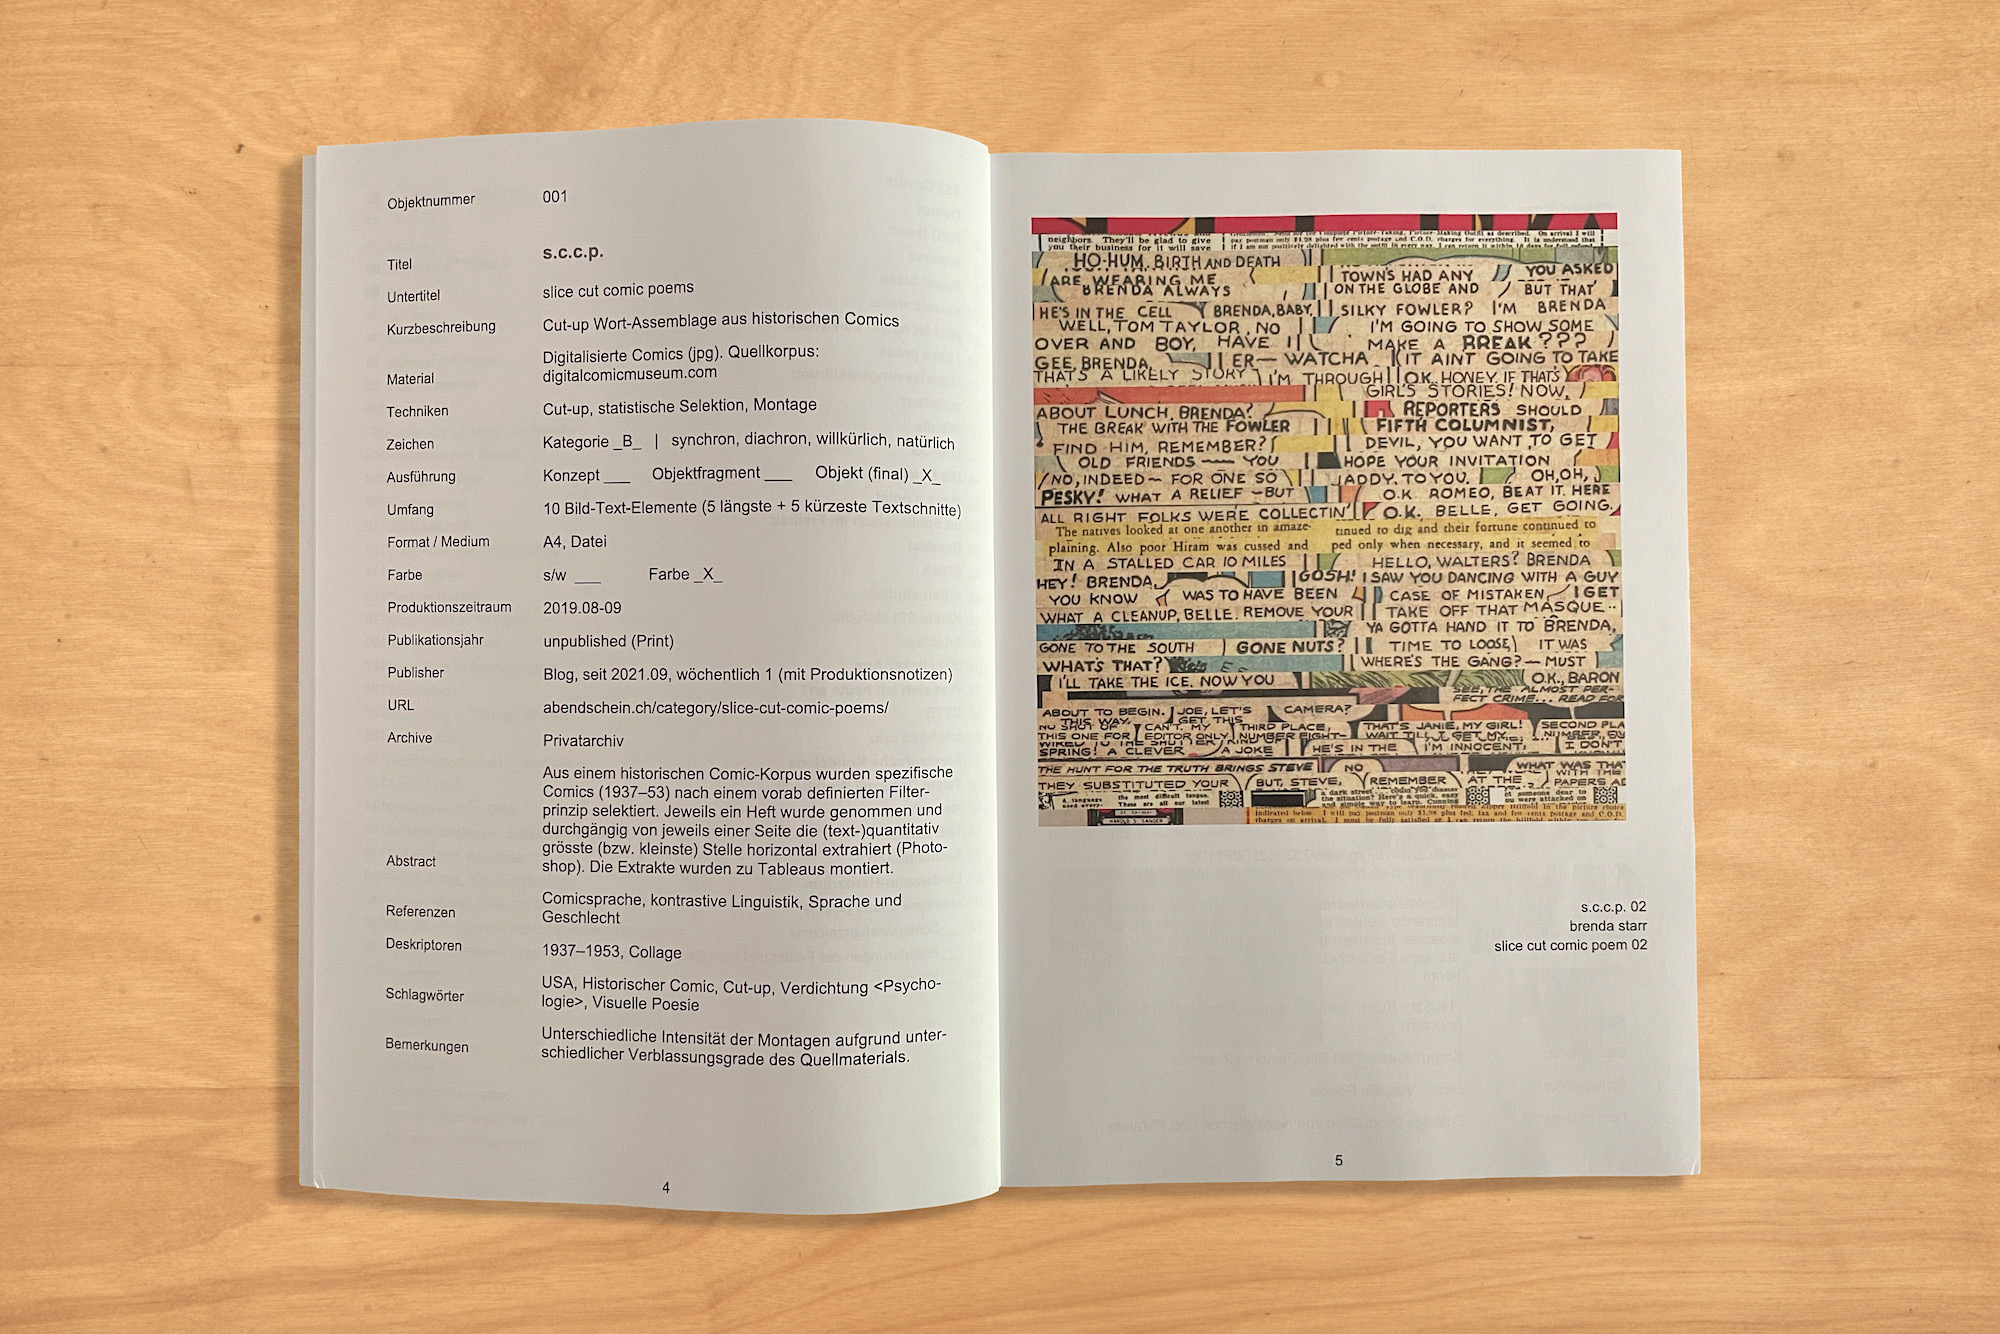 Objektnummer 001
Titel s.c.c.p.
Untertitel slice cut comic poems
Kurzbeschreibung Cut-up Wort-Assemblage aus historischen Comics
Digitalisierte Comics (jpg). Quellkorpus:
Material digitalcomicmuseum.com
Techniken Cut-up, statistische Selektion, Montage
Zeichen Kategorie _B_ | synchron, diachron, willkürlich, natürlich
Ausführung Konzept ___ Objektfragment ___ Objekt (final) _X_
Umfang 10 Bild-Text-Elemente (5 längste + 5 kürzeste Textschnitte)
Format / Medium A4, Datei
Farbe s/w ___ Farbe _X_
Produktionszeitraum 2019.08-09
Publikationsjahr unpublished (Print)
Publisher Blog, seit 2021.09, wöchentlich 1 (mit Produktionsnotizen)
URL abendschein.ch/category/slice-cut-comic-poems/
Archive Privatarchiv
Aus einem historischen Comic-Korpus wurden spezifische
Comics (1937–53) nach einem vorab definierten Filter-
prinzip selektiert. Jeweils ein Heft wurde genommen und
durchgängig von jeweils einer Seite die (text-)quantitativ
grösste (bzw. kleinste) Stelle horizontal extrahiert (Photo-
Abstract shop). Die Extrakte wurden zu Tableaus montiert.
Referenzen Comicsprache, kontrastive Linguistik, Sprache und
Geschlecht
Deskriptoren 1937–1953, Collage
Schlagwörter USA, Historischer Comic, Cut-up, Verdichtung <Psycho-
logie>, Visuelle Poesie
Bemerkungen Unterschiedliche Intensität der Montagen aufgrund unter-
schiedlicher Verblassungsgrade des Quellmaterials.
4
neighbors. They'll be glad to give pay postman only $1.98 plus few cents postage and C.O.D. charges for everything. It is understood that
you their business for it will save if I am not positively delighted with the outfit in every way, I can return it within 10 days for full refund.
HO-HUM, BIRTH AND DEATH
ARE WEARING ME TOWN'S HAD ANY YOU ASKED
BRENDA ALWAYS ON THE GLOBE AND BUT THAT
HE'S IN THE CELL BRENDA, BABY, SILKY FOWLER? I'M BRENDA
WELL, TOM TAYLOR, NO I'M GOING TO SHOW SOME
OVER AND BOY, HAVE I MAKE A BREAK???
GEE, BRENDA, ER— WATCHA IT AINT GOING TO TAKE
THAT'S A LIKELY STORY I'M THROUGH O.K. HONEY, IF THAT'S
GIRL'S STORIES! NOW,
ABOUT LUNCH, BRENDA? REPORTERS SHOULD
THE BREAK WITH THE FOWLER FIFTH COLUMNIST,
FIND HIM, REMEMBER? DEVIL, YOU WANT TO GET
OLD FRIENDS — YOU HOPE YOUR INVITATION
NO, INDEED — FOR ONE SO ADDY. TO YOU, OH, OH,
PESKY! WHAT A RELIEF — BUT O.K. ROMEO, BEAT IT. HERE
ALL RIGHT FOLKS WERE COLLECTIN' O.K., BELLE, GET GOING,
The natives looked at one another in amaze- tinued to dig and their fortune continued to
plaining. Also poor Hiram was cussed and ped only when necessary, and it seemed to
IN A STALLED CAR 10 MILES HELLO, WALTERS? BRENDA
HEY! BRENDA, GOSH! I SAW YOU DANCING WITH A GUY
YOU KNOW WAS TO HAVE BEEN CASE OF MISTAKEN I GET
WHAT A CLEANUP, BELLE. REMOVE YOUR TAKE OFF THAT MASQUE--
YA GOTTA HAND IT TO BRENDA,
GONE TO THE SOUTH GONE NUTS? TIME TO LOOSE, IT WAS
WHAT'S THAT? WHERE'S THE GANG? — MUST
I'LL TAKE THE ICE. NOW YOU O.K., BARON
SEE, THE ALMOST PER-
FECT CRIME... READ FOR
ABOUT TO BEGIN. JOE, LET'S CAMERA?
THIS WAY. GET THIS
CAN'T. MY THIRD PLACE, THAT'S JANIE, MY GIRL! SECOND PLA
THIS ONE FOR EDITOR ONLY NUMBER EIGHT- WAIT TILL I GET MY
SPRING! A CLEVER A JOKE HE'S IN THE I'M INNOCENT! I DON'T
THE HUNT FOR THE TRUTH BRINGS STEVE NO WHAT WAS THA
WITH THE
THEY SUBSTITUTED YOUR BUT, STEVE, REMEMBER AT THE PAPERS A
A language the most difficult tongue. a dark street the situation? Here's a quick, easy someone dear to
These are all our latest and simple way to learn. Cunning ou were attacked on
HAROLD S. SANDER
charges on arrival.
s.c.c.p. 02
brenda starr
slice cut comic poem 02
5